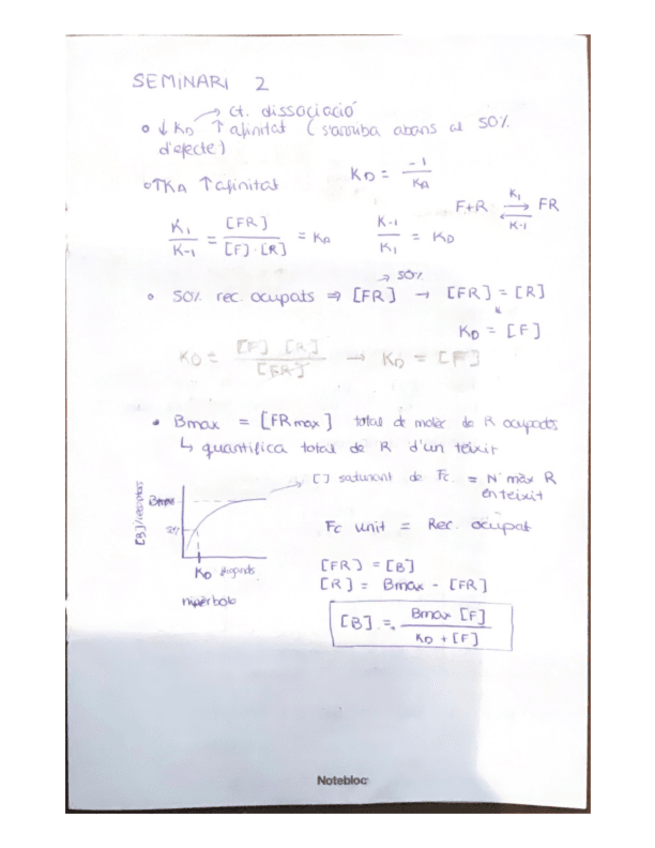 SEMINARI 2
→ ct. dissociació
o ↓ KD ↑ afinitat (s'arriba abans al 50%
d'efecte)
o ↑ KA ↑ afinitat
KD = -1 / KA
F+R ⇌ FR
K1
K-1
K1 / K-1 = [FR] / [F]·[R] = KA
K-1 / K1 = KD
→ 50%
• 50% rec. ocupats ⇒ [FR] → [FR] = [R]
KD = [F]
KD = [F] [R] / [FR] → KD = [F]
• Bmax = [FRmax] total de molèc de R ocupats
↳ quantifica total de R d'un teixit
[B]/
Bmax
→ [] saturant de Fc. = Nº màx R
en teixit
Fc unit = Rec. ocupat
KD
hipèrbola
[FR] = [B]
[R] = Bmax - [FR]
[B] = Bmax [F] / KD + [F]
Notebloc